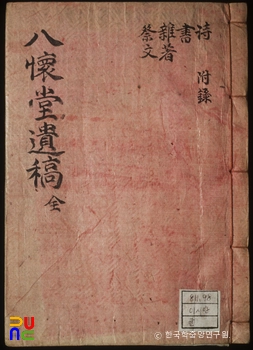 詩
書
雜著
祭文
附錄
八懷堂遺稿 全
811.98
© 한국학중앙연구원